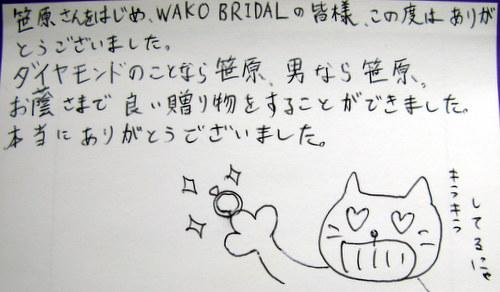 笹原さんをはじめ、WAKO BRIDALの皆様、この度はありが
とうございました。
ダイヤモンドのことなら笹原、男なら笹原。
お蔭さまで良い贈り物をすることができました。
本当にありがとうございました。
キラキラ
してるにゃ